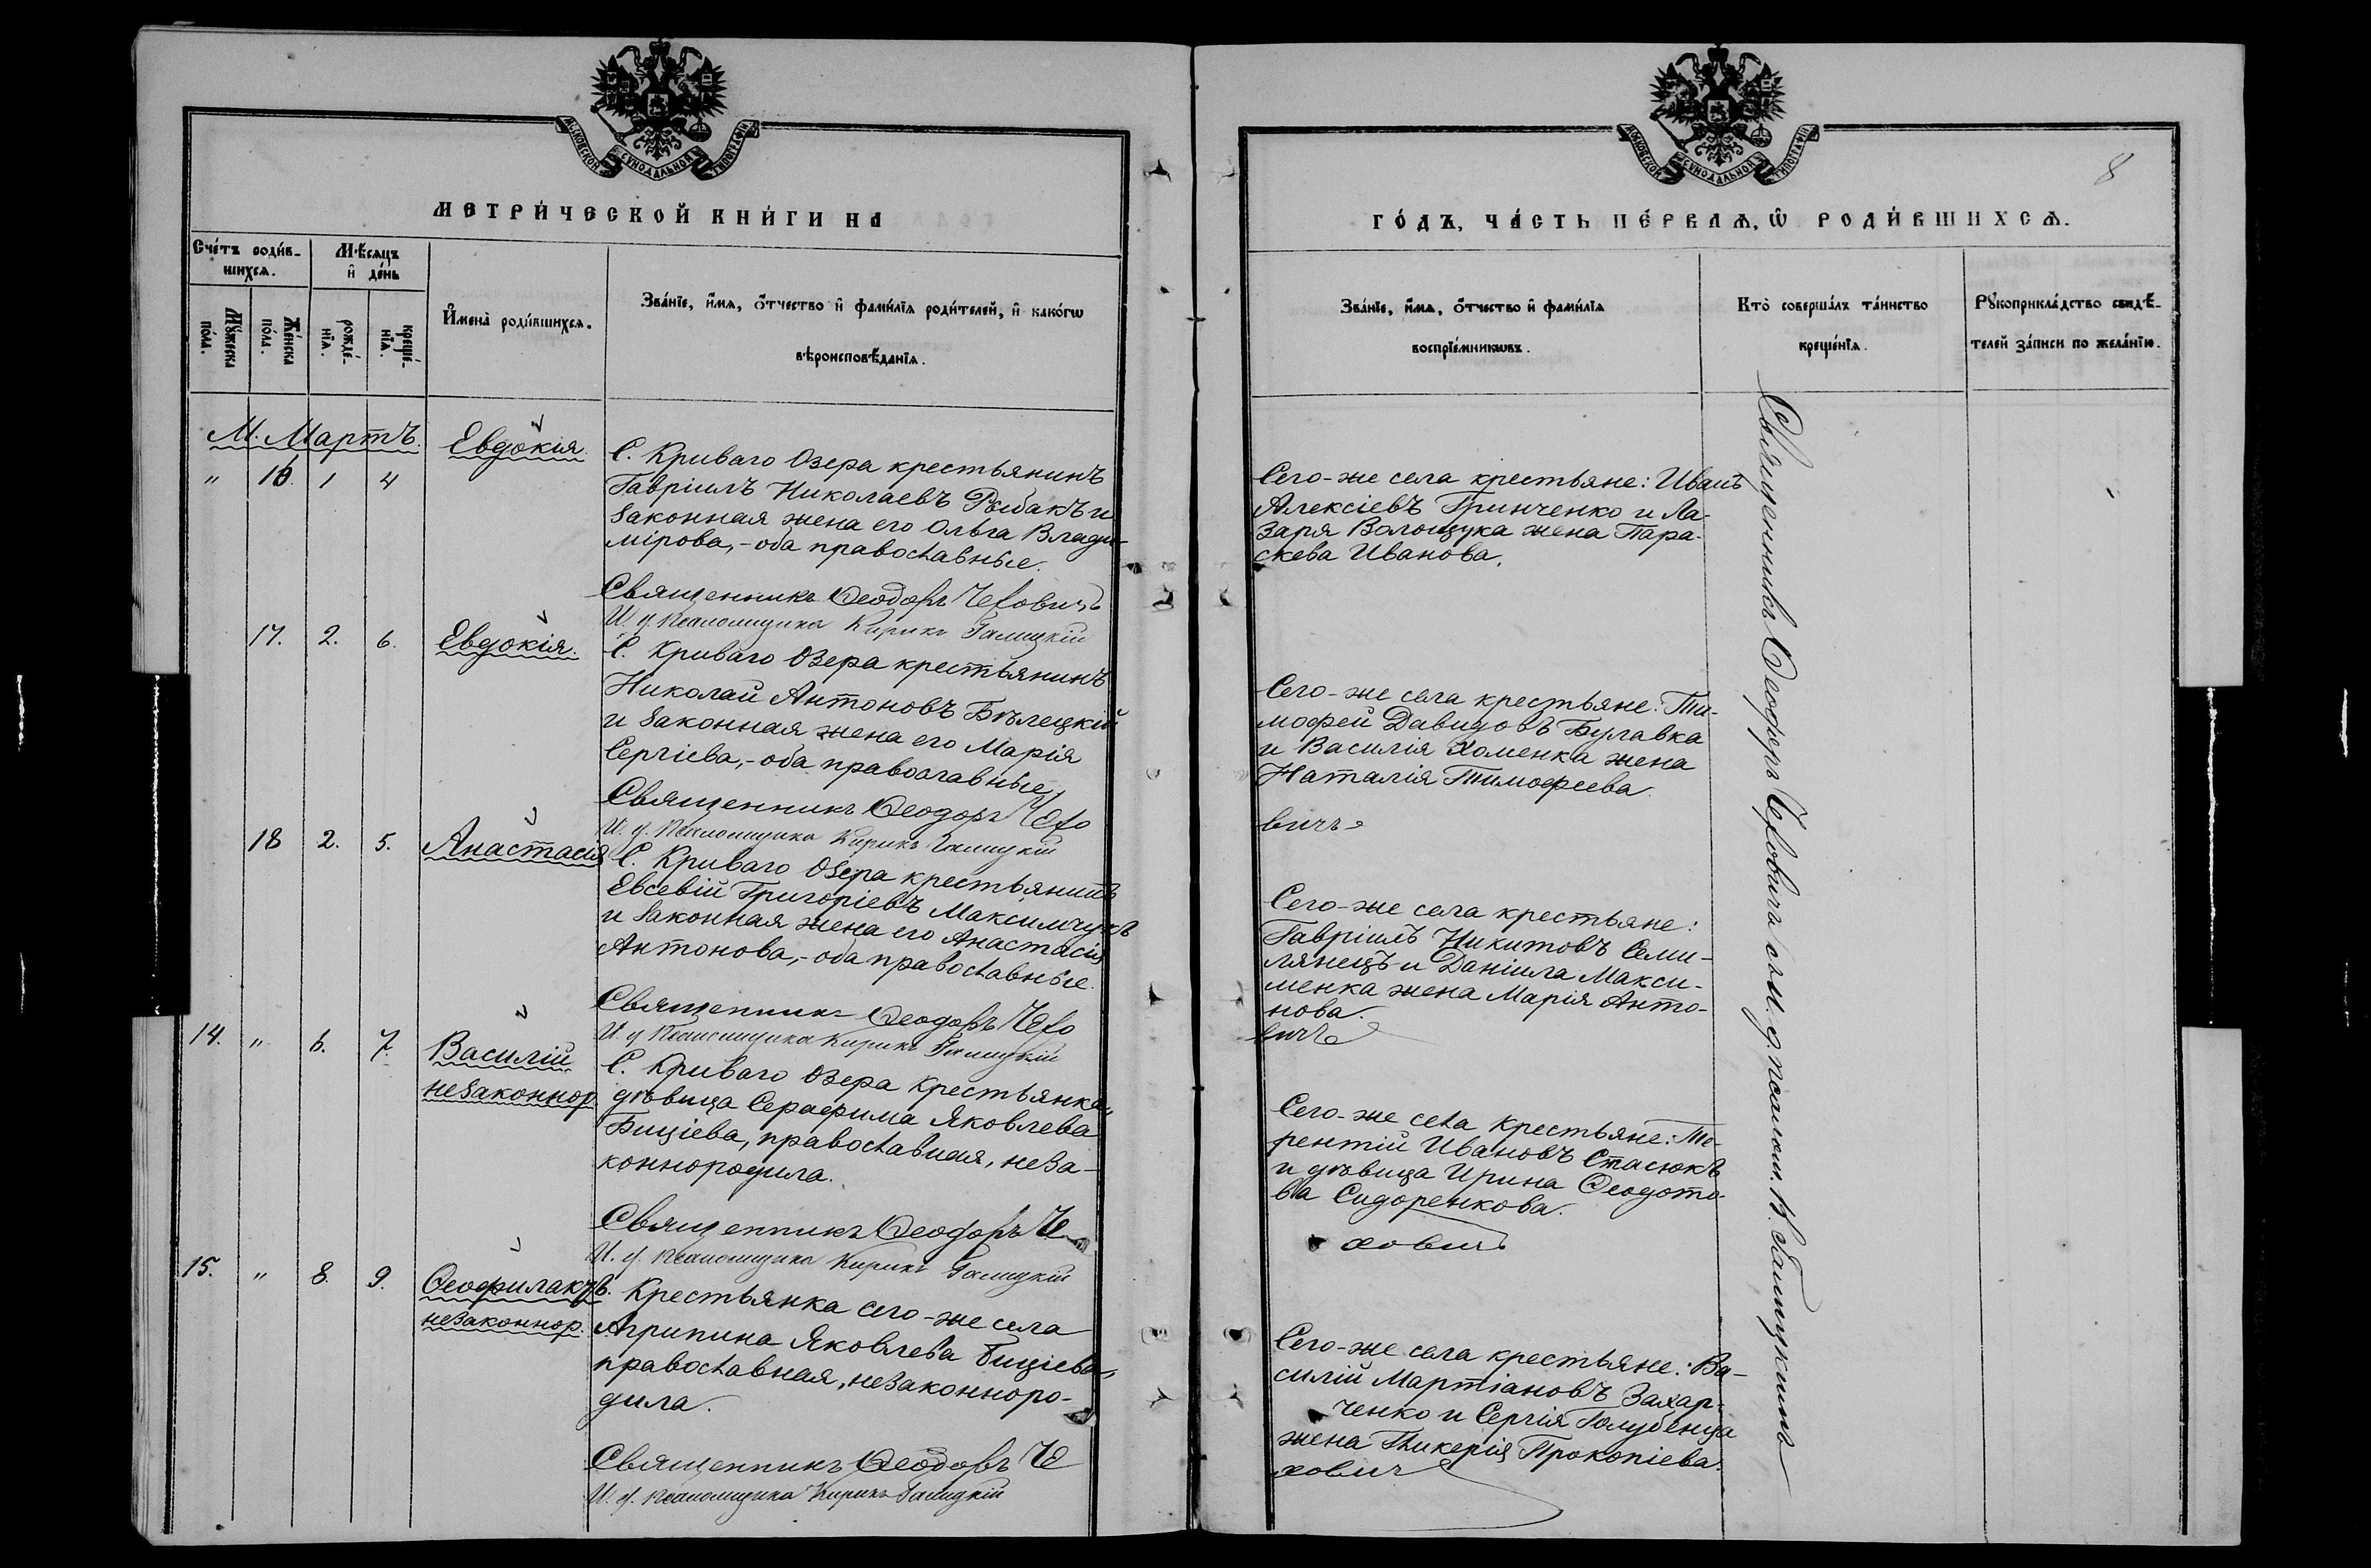 МОСКОВСКОЙ СУНОДАЛЬНОЙ ТИПОГРАФІИ
МЕТРИ́ЧЕСКОЙ КНИ́ГИ НА
Сче́тъ роди́в-
шихся.
Мѣсяцъ
и҆ де́нь
Му́жеска
по́ла.
Же́нска
по́ла.
рожде́-
нїя.
креще́-
нїя.
И҆мена̀ роди́вшихся.
Зва́нїе, и҆́мя, о҆́тчество и҆ фами́лїя роди́телей, и҆ како́гѡ
вѣроисповѣ́данїя.
М. Мартъ.
" 16. 1 4
Евдокія
С. Криваго Озера крестьянинъ
Гавріилъ Николаевъ Рыбакъ и
законная жена его Ольга Влади-
мірова,-оба православные.
Священникъ Ѳеодоръ Чехович
И. д. Псаломщика Кирикъ Галицкій
17. 2. 6. Евдокія.
С. Криваго Озера крестьянинъ
Николай Антоновъ Бѣлецкій
и законная жена его Марія
Сергіева,-оба православные.
Священникъ Ѳеодоръ Чехо
И. д. Псаломщика Кирикъ Галицкій
18 2. 5. Анастасія
С. Криваго Озера крестьянинъ
Евсевій Григоріевъ Максимчукъ
и законная жена его Анастасія
Антонова,-оба православные.
Священникъ Ѳеодоръ Чехо
И. д. Псаломщика Кирикъ Галицкій
14. " 6. 7. Василій
незаконнор.
С. Криваго Озера крестьянка,
дѣвица Серафима Яковлева
Бицієва, православная, неза-
коннородила.
Священникъ Ѳеодоръ Че
И. д. Псаломщика Кирикъ Галицкій
15. " 8. 9. Ѳеофилактъ.
незаконнор.
Крестьянка сего-же села
Агрипина Яковлева Бицієва,
православная, незаконноро-
дила.
Священникъ Ѳеодоръ Че
И. д. Псаломщика Кирикъ Галицкій
МОСКОВСКОЙ СУНОДАЛЬНОЙ ТИПОГРАФІИ
8
ГО́ДЪ, ЧА́СТЬ ПЕ́РВАЯ, Ѡ҆ РОДИ́ВШИХСЯ.
Зва́нїе, и҆́мя, о҆́тчество и҆ фами́лїя
воспрїе́мникѡвъ.
Кто̀ соверша́лъ та́инство
креще́нїя.
Рꙋкоприкла́дство свидѣ́-
телей за́писи по жела́нїю.
Сего-же села крестьяне: Иванъ
Алексіевъ Гринченко и Ла-
заря Волощука жена Пара-
скева Иванова.
Сего-же села крестьяне: Ти-
мофей Давидовъ Булавка
и Василія Хоменка жена
Наталія Тимофеева.
вичъ
Сего-же села крестьяне:
Гавріилъ Никитовъ Семи-
лянецъ и Даніила Макси-
менка жена Марія Анто-
нова.
вичъ
Сего-же села крестьяне: Те-
рентій Ивановъ Стасюкъ
и дѣвица Ирина Ѳеодото-
ва Сидоренкова.
ховичъ
Сего-же села крестьяне: Ва-
силій Мартіановъ Захар-
ченко и Сергія Голубенца
жена Гликерія Прокопіева.
ховичъ
Священникъ Ѳеодоръ Чеховичъ съ И. д. псаломщ. К. Галицкимъ